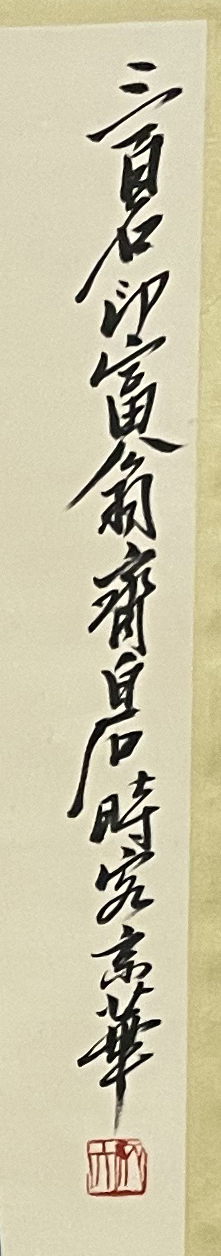 三百石印富翁齊白石時客京華